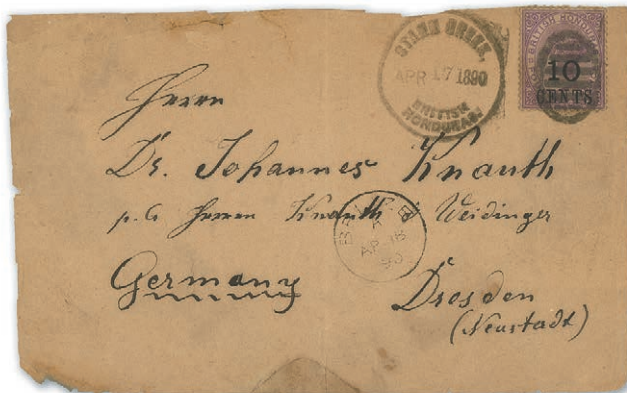 STANN CREEK,
APR 17 1890
BRITISH
HONDURAS.
BRITISH HONDURAS
10
CENTS
Herrn
Dr. Johannes Knauth
p. a Herren Knauth & Weidinger
BELIZE
A
AP 18
90
Germany
Dresden
(Neustadt)